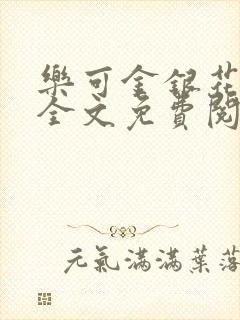 樂可金銀花
全文免費閱
元氣滿滿葉落